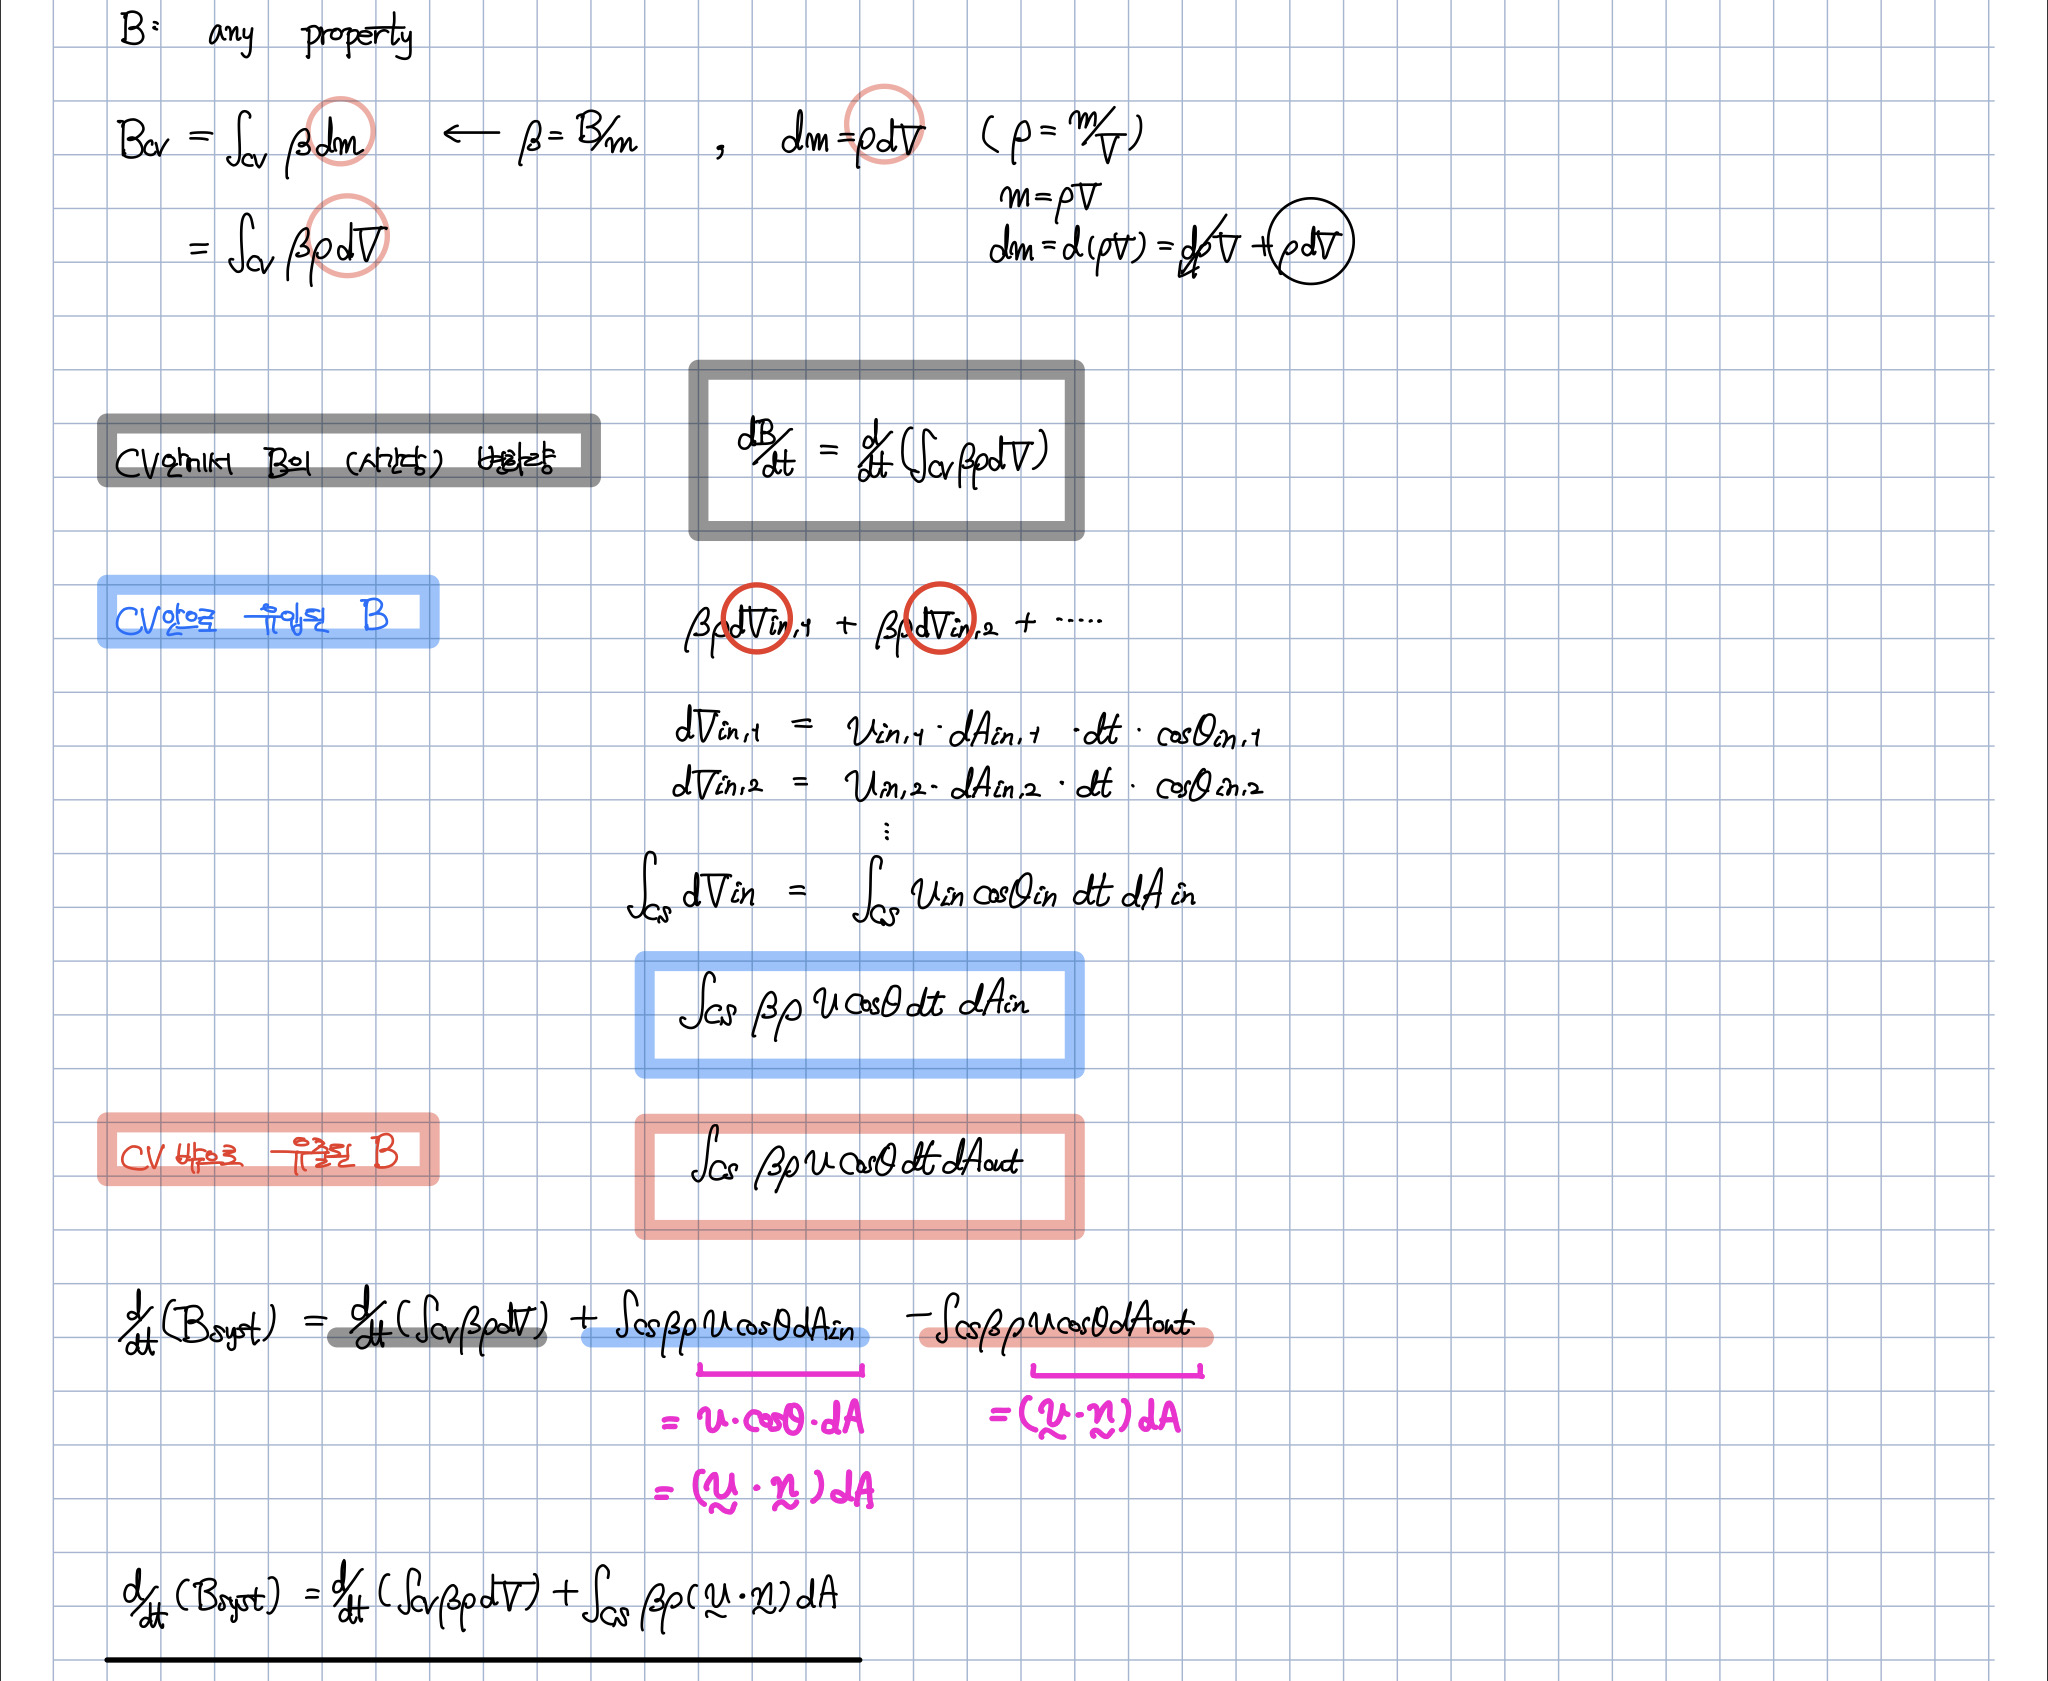 B: any property
Bcv = ∫cv βdm ← β = B/m , dm = ρdV ( ρ = m/V )
m = ρV
= ∫cv βρdV dm = d(ρV) = dρV + ρdV
CV안에서 B의 (시간당) 변화량 dB/dt = d/dt (∫cv βρdV)
CV안으로 유입된 B βρdVin,1 + βρdVin,2 + ·····
dVin,1 = vin,1 · dAin,1 · dt · cosθin,1
dVin,2 = vin,2 · dAin,2 · dt · cosθin,2
⋮
∫cs dVin = ∫cs vin cosθin dt dAin
∫cs βρ v cosθ dt dAin
CV 밖으로 유출된 B ∫cs βρ v cosθ dt dAout
d/dt (Bsyst) = d/dt (∫cv βρdV) + ∫cs βρ v cosθ dAin − ∫cs βρ v cosθ dAout
= v · cosθ · dA = (v · n) dA
= (v · n) dA
d/dt (Bsyst) = d/dt (∫cv βρdV) + ∫cs βρ (v · n) dA